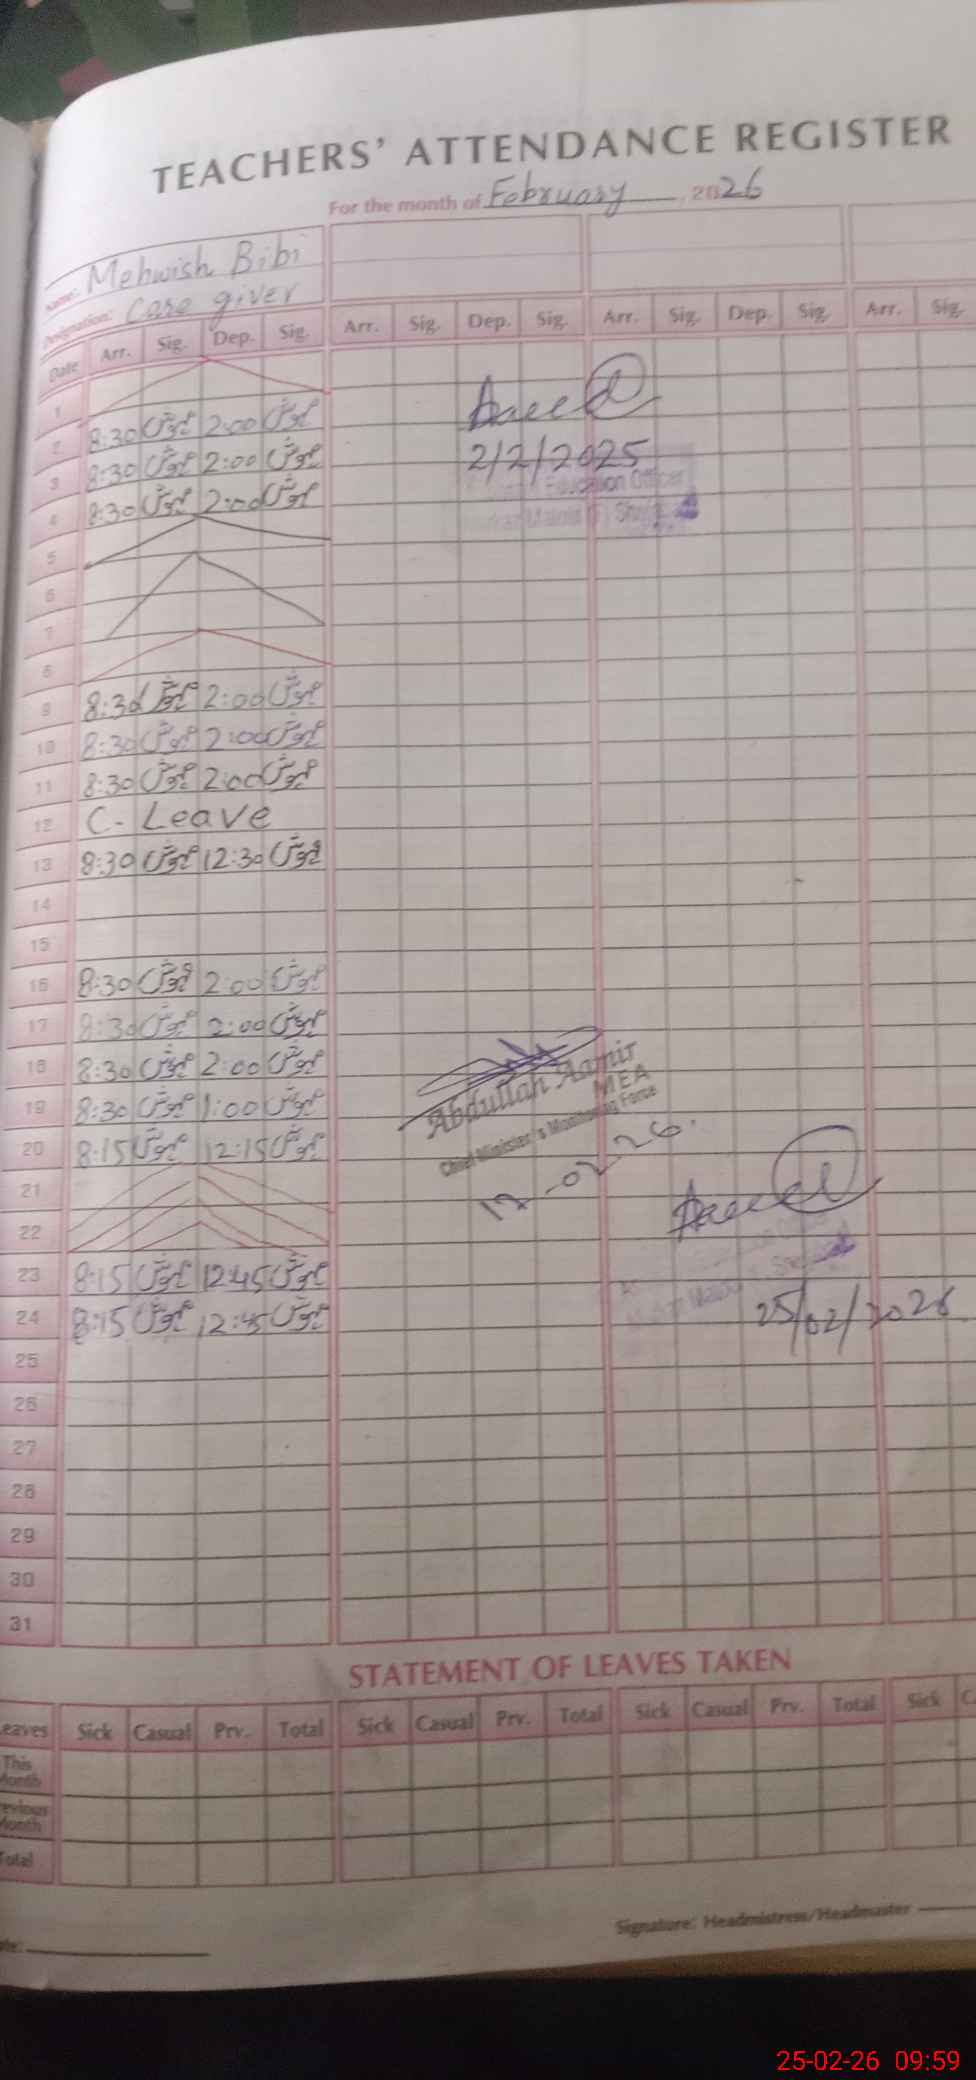 TEACHERS' ATTENDANCE REGISTER
For the month of February, 2026
Name: Mehwish Bibi
Designation: Care giver
Date Arr. Sig. Dep. Sig. Arr. Sig. Dep. Sig. Arr. Sig. Dep. Sig. Arr. Sig.
1
2 8:30 مہوش 2:00 مہوش
3 8:30 مہوش 2:00 مہوش
4 8:30 مہوش 2:00 مہوش
2/2/2025
Education Officer
5
6
7
8
9 8:30 مہوش 2:00 مہوش
10 8:30 مہوش 2:00 مہوش
11 8:30 مہوش 2:00 مہوش
12 C- Leave
13 8:30 مہوش 12:30 مہوش
14
15
16 8:30 مہوش 2:00 مہوش
17 8:30 مہوش 2:00 مہوش
18 8:30 مہوش 2:00 مہوش
19 8:30 مہوش 1:00 مہوش
20 8:15 مہوش 12:15 مہوش
Abdullah Aamir
MEA
Chief Minister's Monitoring Force
17-02-26.
21
22
23 8:15 مہوش 12:45 مہوش
24 8:15 مہوش 12:45 مہوش
25/02/2026
25
26
27
28
29
30
31
STATEMENT OF LEAVES TAKEN
Leaves Sick Casual Prv. Total Sick Casual Prv. Total Sick Casual Prv. Total Sick C
This Month
Previous Month
Total
Signature: Headmistress/Headmaster
25-02-26 09:59